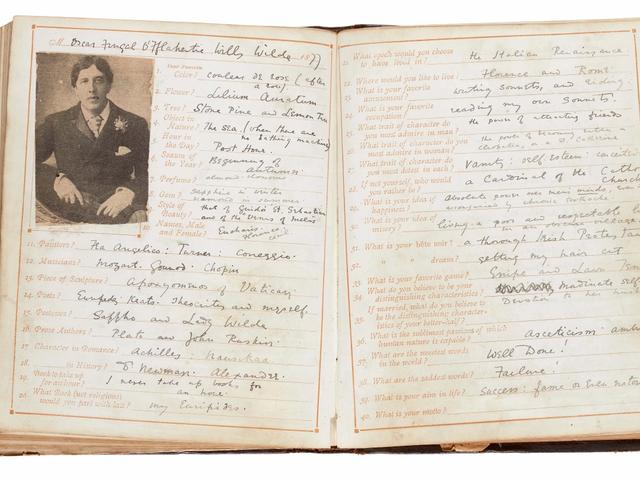 M Oscar Fingal O'Fflahertie Wills Wilde 1877
Your Favorite
1. Color? couleur de rose (after
a rose)
2. Flower? Lilium Auratum
3. Tree? Stone Pine and Lemon Tree
4. Object in
Nature? The Sea. (when there are
no bathing machines
5. Hour in
the Day? Post Hour.
6. Season of
the Year? Beginning of
autumn
7. Perfume? almond blossoms
8. Gem? Sapphire in winter
diamond in summer
9. Style of
Beauty? that of Guido's St. Sebastian
and of the Venus of Melos
10. Names, Male
and Female? Eucharis
Florence
11. Painters? Fra Angelico: Turner: Correggio.
12. Musicians? Mozart. Gounod. Chopin
13. Piece of Sculpture? Apoxyomenos of Vatican
14. Poets? Euripides Keats. Theocritus and myself.
15. Poetesses? Sappho and Lady Wilde
16. Prose Authors? Plato and John Ruskin.
17. Character in Romance? Achilles: Nausikaa
18. in History? Newman. Alexander.
19. Book to take up
for an hour? I never take up books for
an hour.
20. What Book (not religious)
would you part with last? my Euripides.
21. What epoch would you choose
to have lived in? the Italian Renaissance
22. Where would you like to live? Florence and Rome
23. What is your favorite
amusement? writing sonnets, and riding.
24. What is your favorite
occupation? reading my own sonnets.
25. What trait of character do
you most admire in man? the power of attracting friends
26. What trait of character do
you most admire in woman? the power of being either a
Cleopatra, or a St. Catherine
27. What trait of character do
you most detest in each? Vanity: self esteem: conceitedness
28. If not yourself, who would
you rather be? a Cardinal of the Catholic
Church
29. What is your idea of
happiness? absolute power over men's minds, even if
accompanied by chronic toothache
30. What is your idea of
misery? living a poor and respectable
in an obscure village
31. What is your bête noir? a thorough Irish Protestant
32. " " " dream? getting my hair cut
33. What is your favorite game? Snipe and Lawn
34. What do you believe to be your
distinguishing characteristics? inordinate self
35. If married, what do you believe to
be the distinguishing character-
istics of your better-half? Devotion to her
36. What is the sublimest passion of which
human nature is capable? Asceticism: ambition
37. What are the sweetest words
in the world? Well Done!
38. What are the saddest words? Failure!
39. What is your aim in life? Success: fame or even notoriety
40. What is your motto?